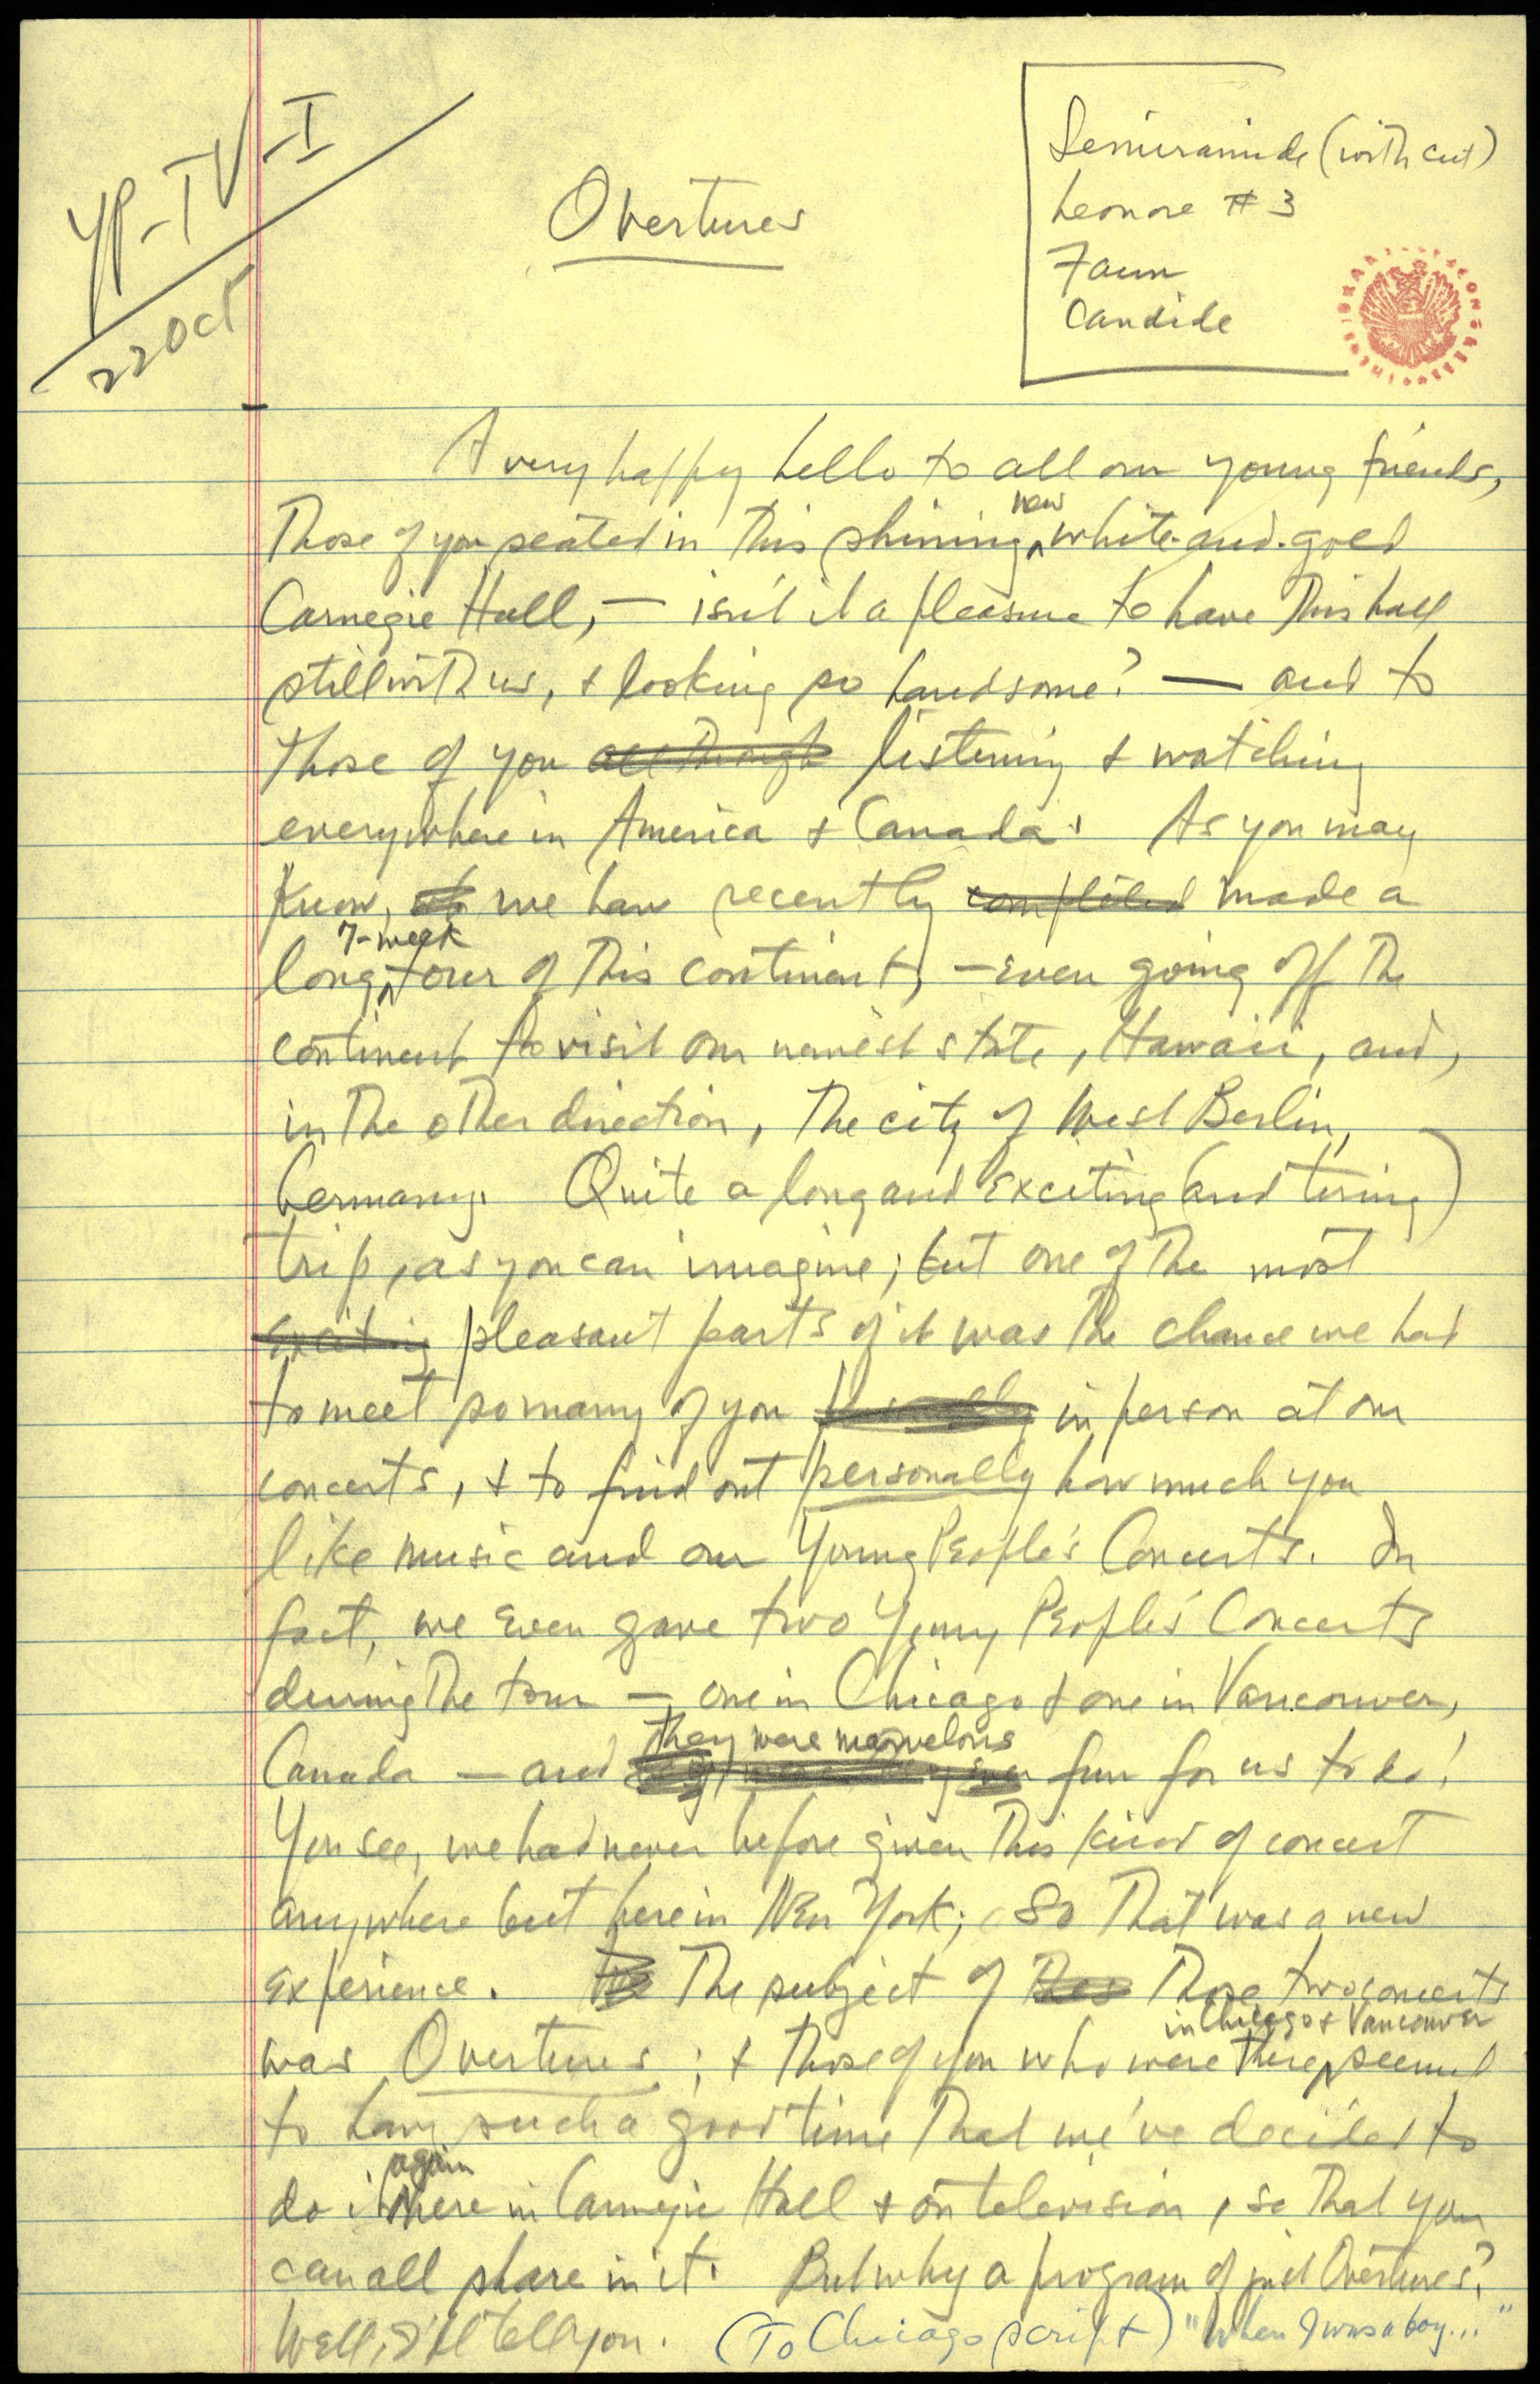 YP-TV-I
22 Oct
Overtures
Semiramide (with cut)
Leonore #3
Faun
Candide
A very happy hello to all our young friends,
Those of you seated in this shining new white-and-gold
Carnegie Hall, — isn't it a pleasure to have this hall
still with us, & looking so handsome? — and to
those of you all through listening & watching
everywhere in America & Canada. As you may
know, we have recently completed made a
long 7-week tour of this continent, — even going off the
continent to visit our newest state, Hawaii, and,
in the other direction, the city of West Berlin,
Germany. Quite a long and exciting (and tiring)
trip, as you can imagine; but one of the most
exciting pleasant parts of it was the chance we had
to meet so many of you personally in person at our
concerts, & to find out personally how much you
like music and our Young People's Concerts. In
fact, we even gave two Young People's Concerts
during the tour — one in Chicago & one in Vancouver,
Canada — and they were marvelous fun for us to do!
You see, we had never before given this kind of concert
anywhere but here in New York; so that was a new
experience. The subject of those two concerts
was Overtures; & those of you who were there in Chicago & Vancouver seemed
to have such a good time that we've decided to
do it again here in Carnegie Hall & on television, so that you
can all share in it. But why a program of just Overtures?
Well, I'll tell you. (To Chicago script) "When I was a boy..."